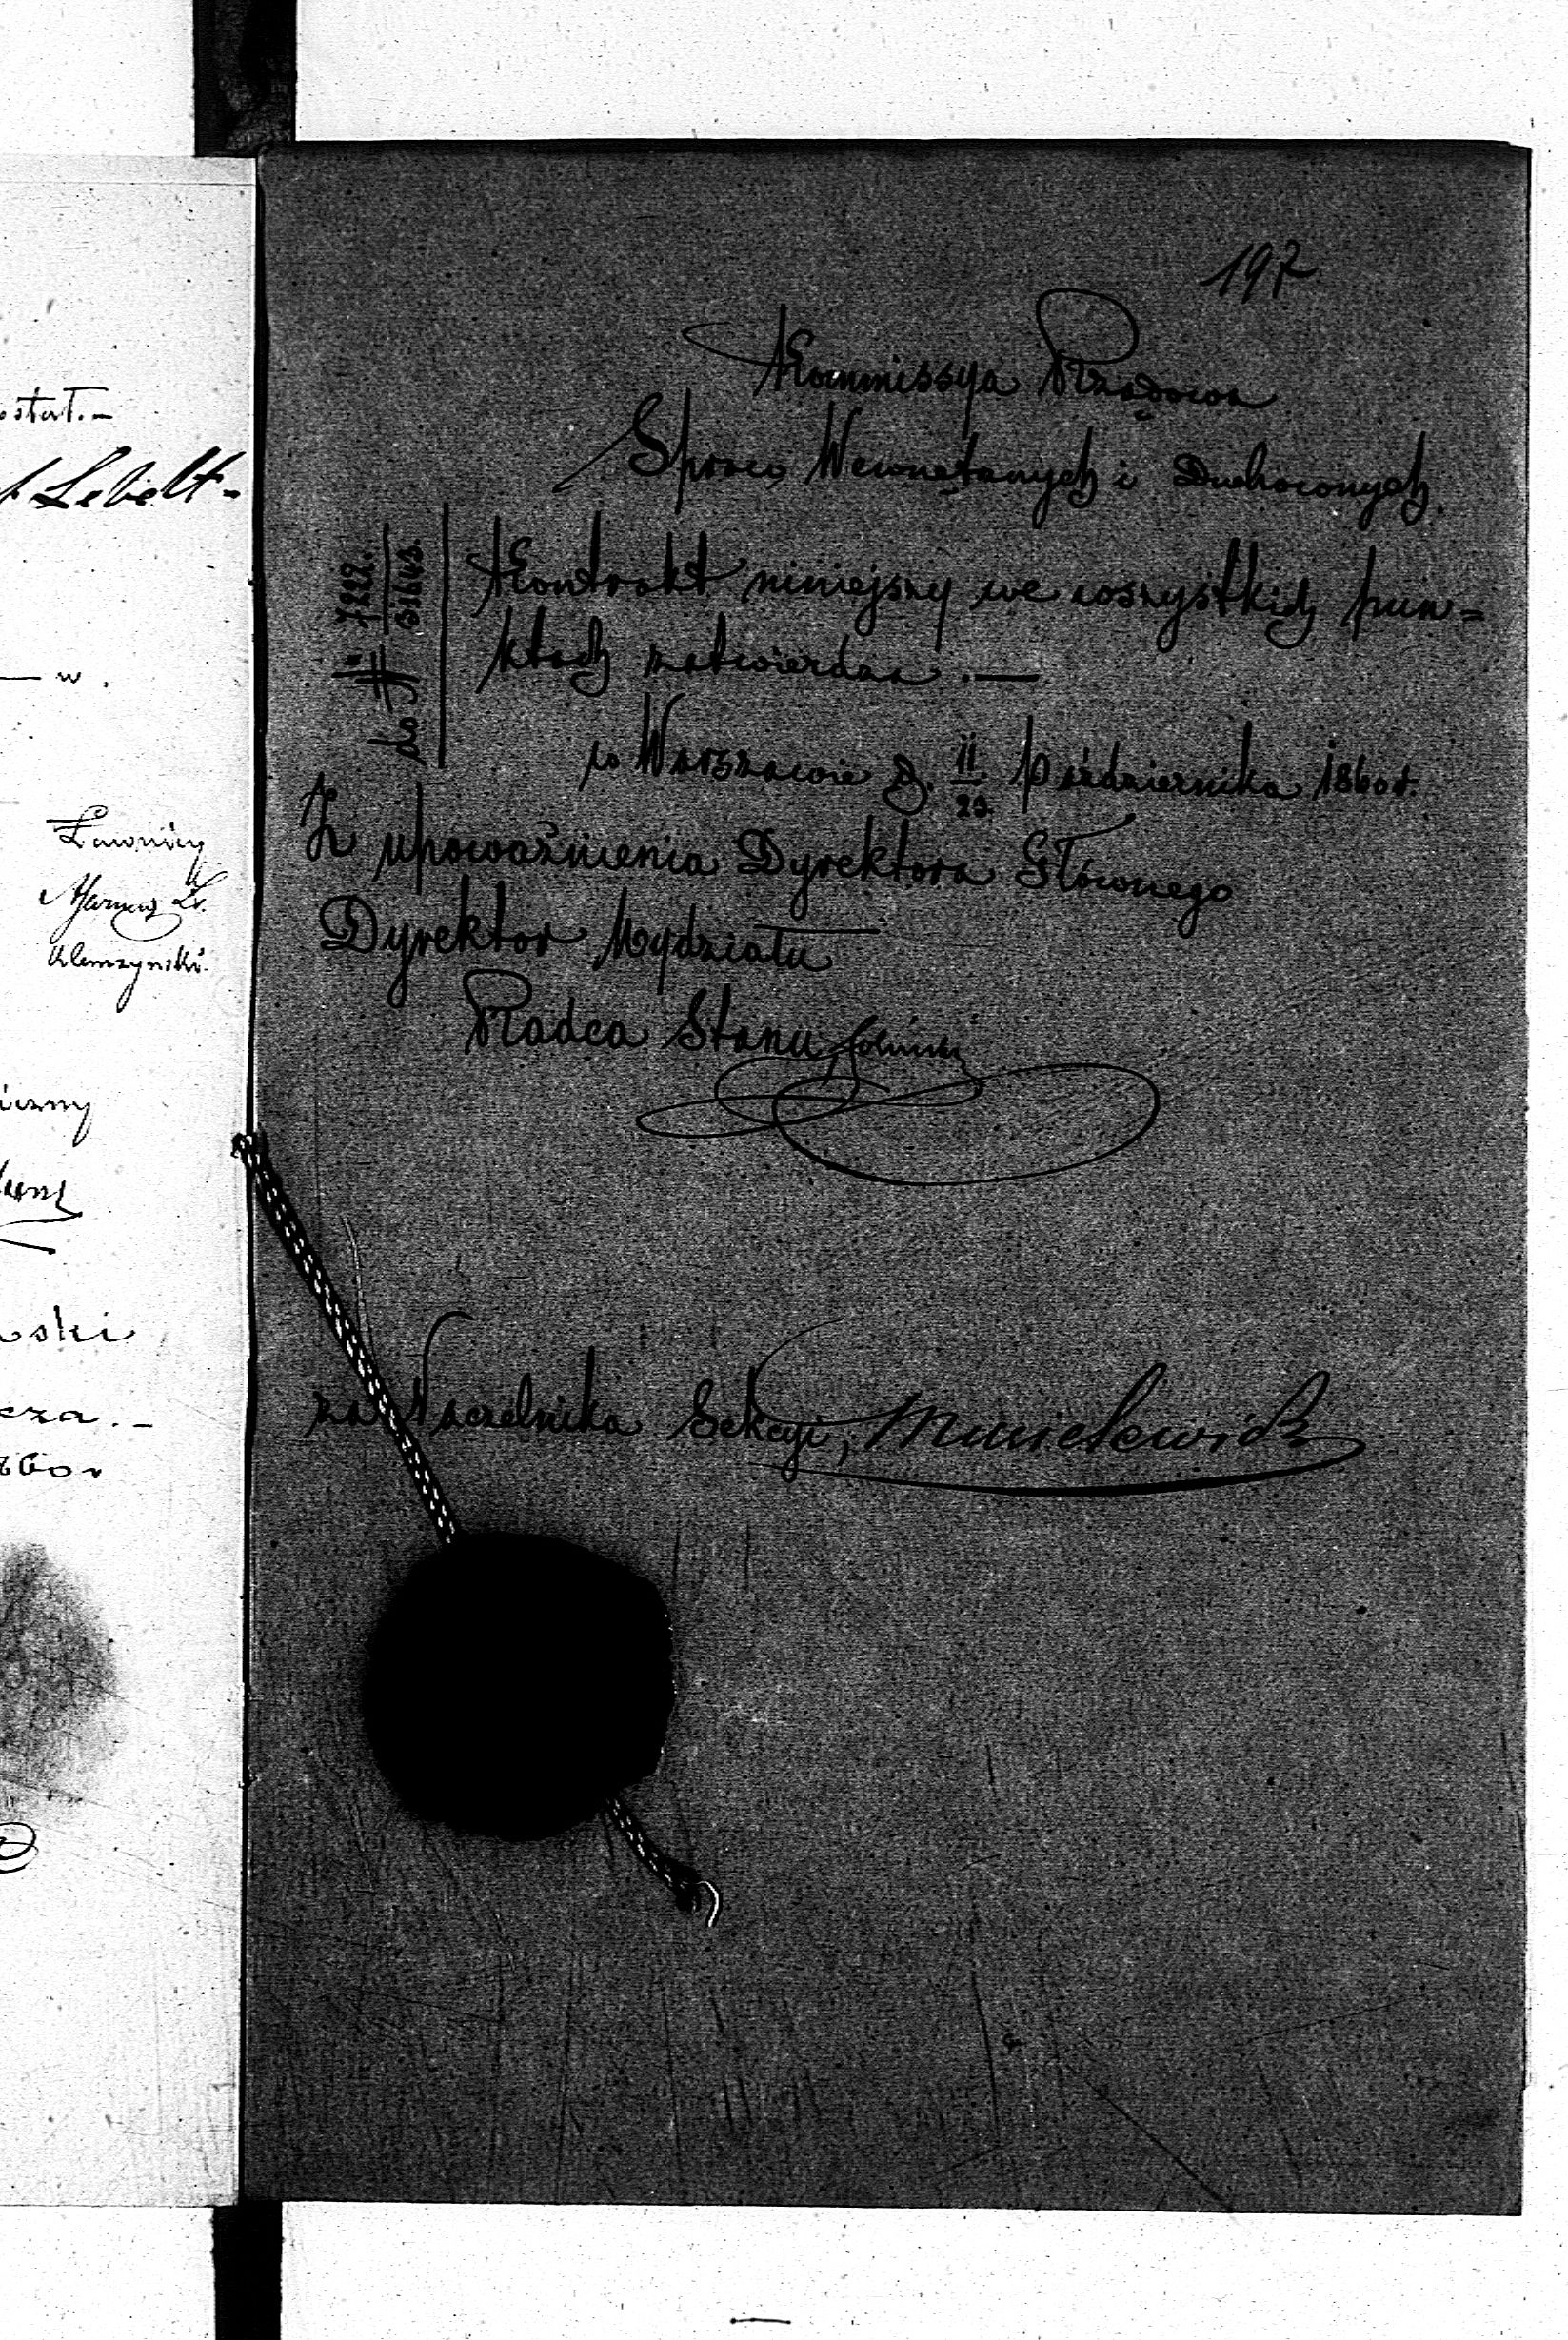 ostat.-
Lebelt-
w.
Ławnicy
Klemczyński
iczny
ski
cza.-
860r
197
Kommissya Rządowa
Spraw Wewnętrznych i Duchownych.
do N 7222.
Kontrakt niniejszy we wszystkich pun=
ktach zatwierdza. —
w Warszawie d. 11/23. Października 1860r.
Z upoważnienia Dyrektora Głównego
Dyrektor Wydziału
Radca Stanu
za Naczelnika Sekcyi,